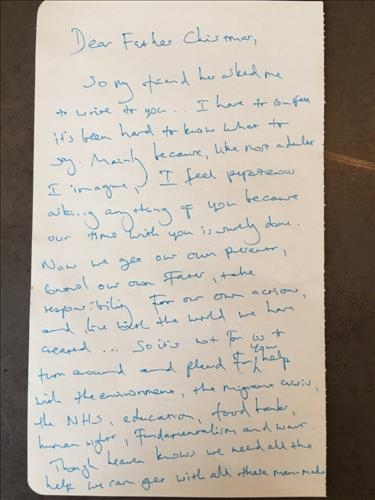 Dear Father Christmas,
So my friend has asked me
to write to you... I have to confess
it's been hard to know what to
say. Mainly because, like most adults
I imagine, I feel
asking anything of you because
our time with you is surely done.
Now we get our own presents,
control our own Fater, take
responsibility for our own actions,
and live with the world we have
created... So it's not for us to
turn around and plead for your help
with the environment, the migrant crisis,
the NHS, education, food banks,
human rights, Fundamentalism and war.
Though heaven knows we need all the
help we can get with all these man-made